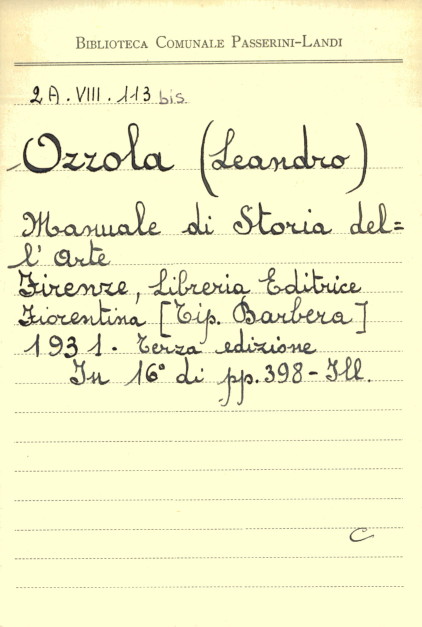 BIBLIOTECA COMUNALE PASSERINI-LANDI
2A. VIII. 113 bis
Ozzola (Leandro)
Manuale di Storia del=
l'Arte
Firenze, Libreria Editrice
Fiorentina [Tip. Barbera]
1931. Terza edizione
In 16° di pp. 398 - Ill.
C